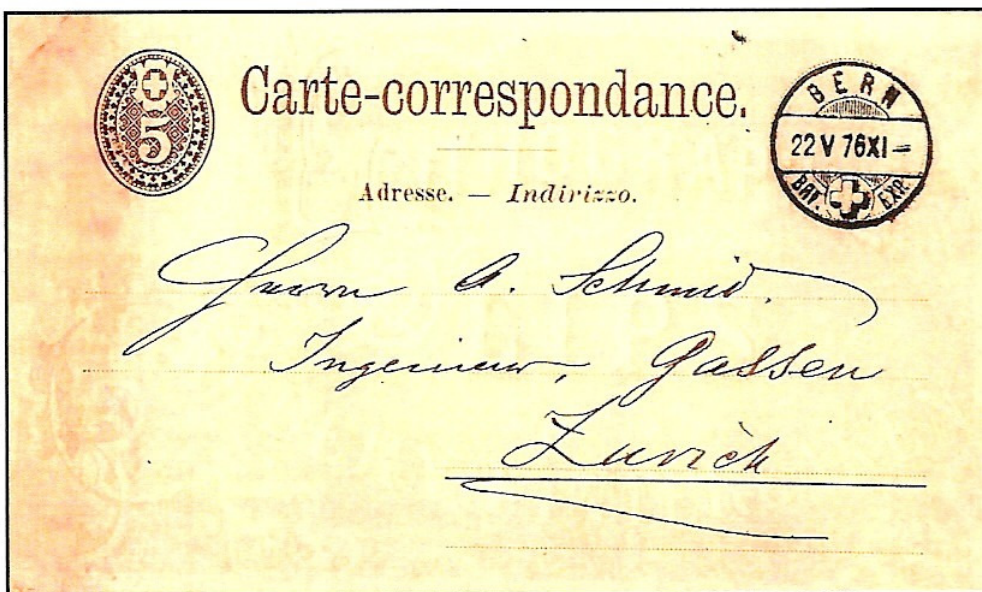 5
Carte-correspondance.
BERN
22 V 76 XI –
BRF. EXP.
Adresse. — Indirizzo.
Herrn A. Schmid.
Ingenieur, Gassen
Zürich